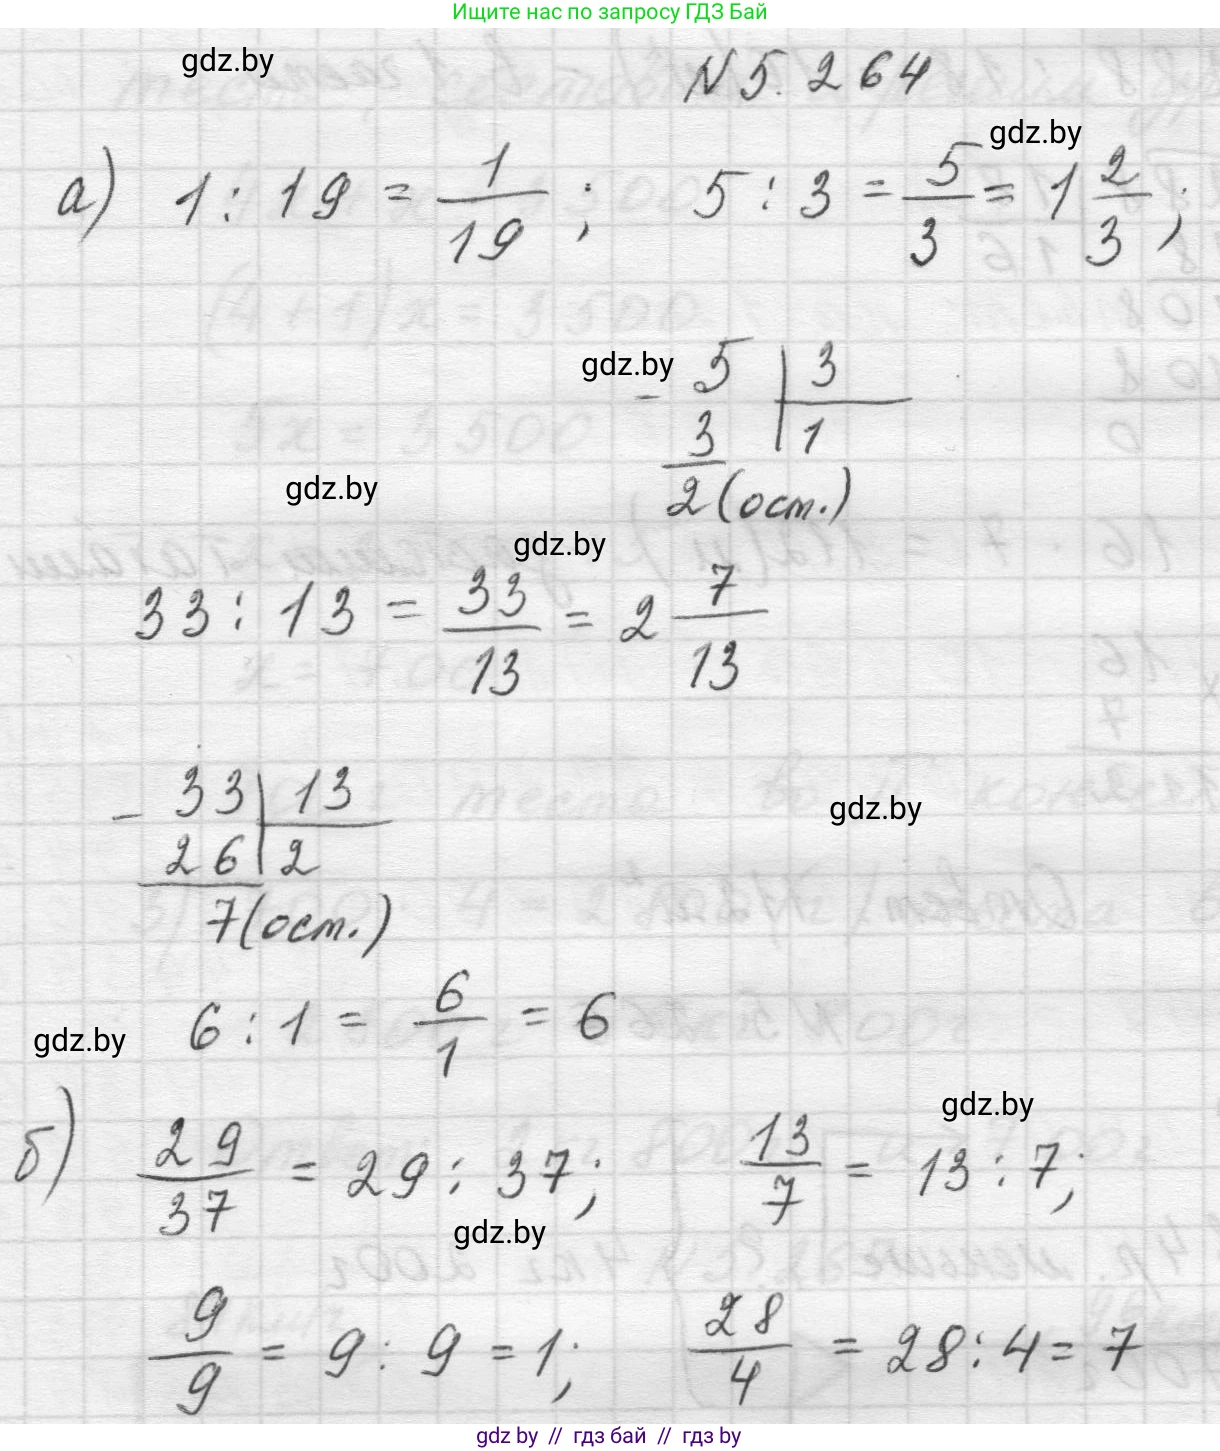 Ищите нас по запросу ГДЗ Бай
gdz.by
N 5.264
gdz.by
а) 1 : 19 = 1/19 ; 5 : 3 = 5/3 = 1 2/3 ;
gdz.by
- 5 | 3
3 | 1
2 (ост.)
gdz.by
gdz.by
33 : 13 = 33/13 = 2 7/13
- 33 | 13
26 | 2
7 (ост.)
gdz.by
6 : 1 = 6/1 = 6
gdz.by
gdz.by
б) 29/37 = 29 : 37; 13/7 = 13 : 7;
gdz.by
9/9 = 9 : 9 = 1; 28/4 = 28 : 4 = 7
gdz.by // гдз бай // гдз by